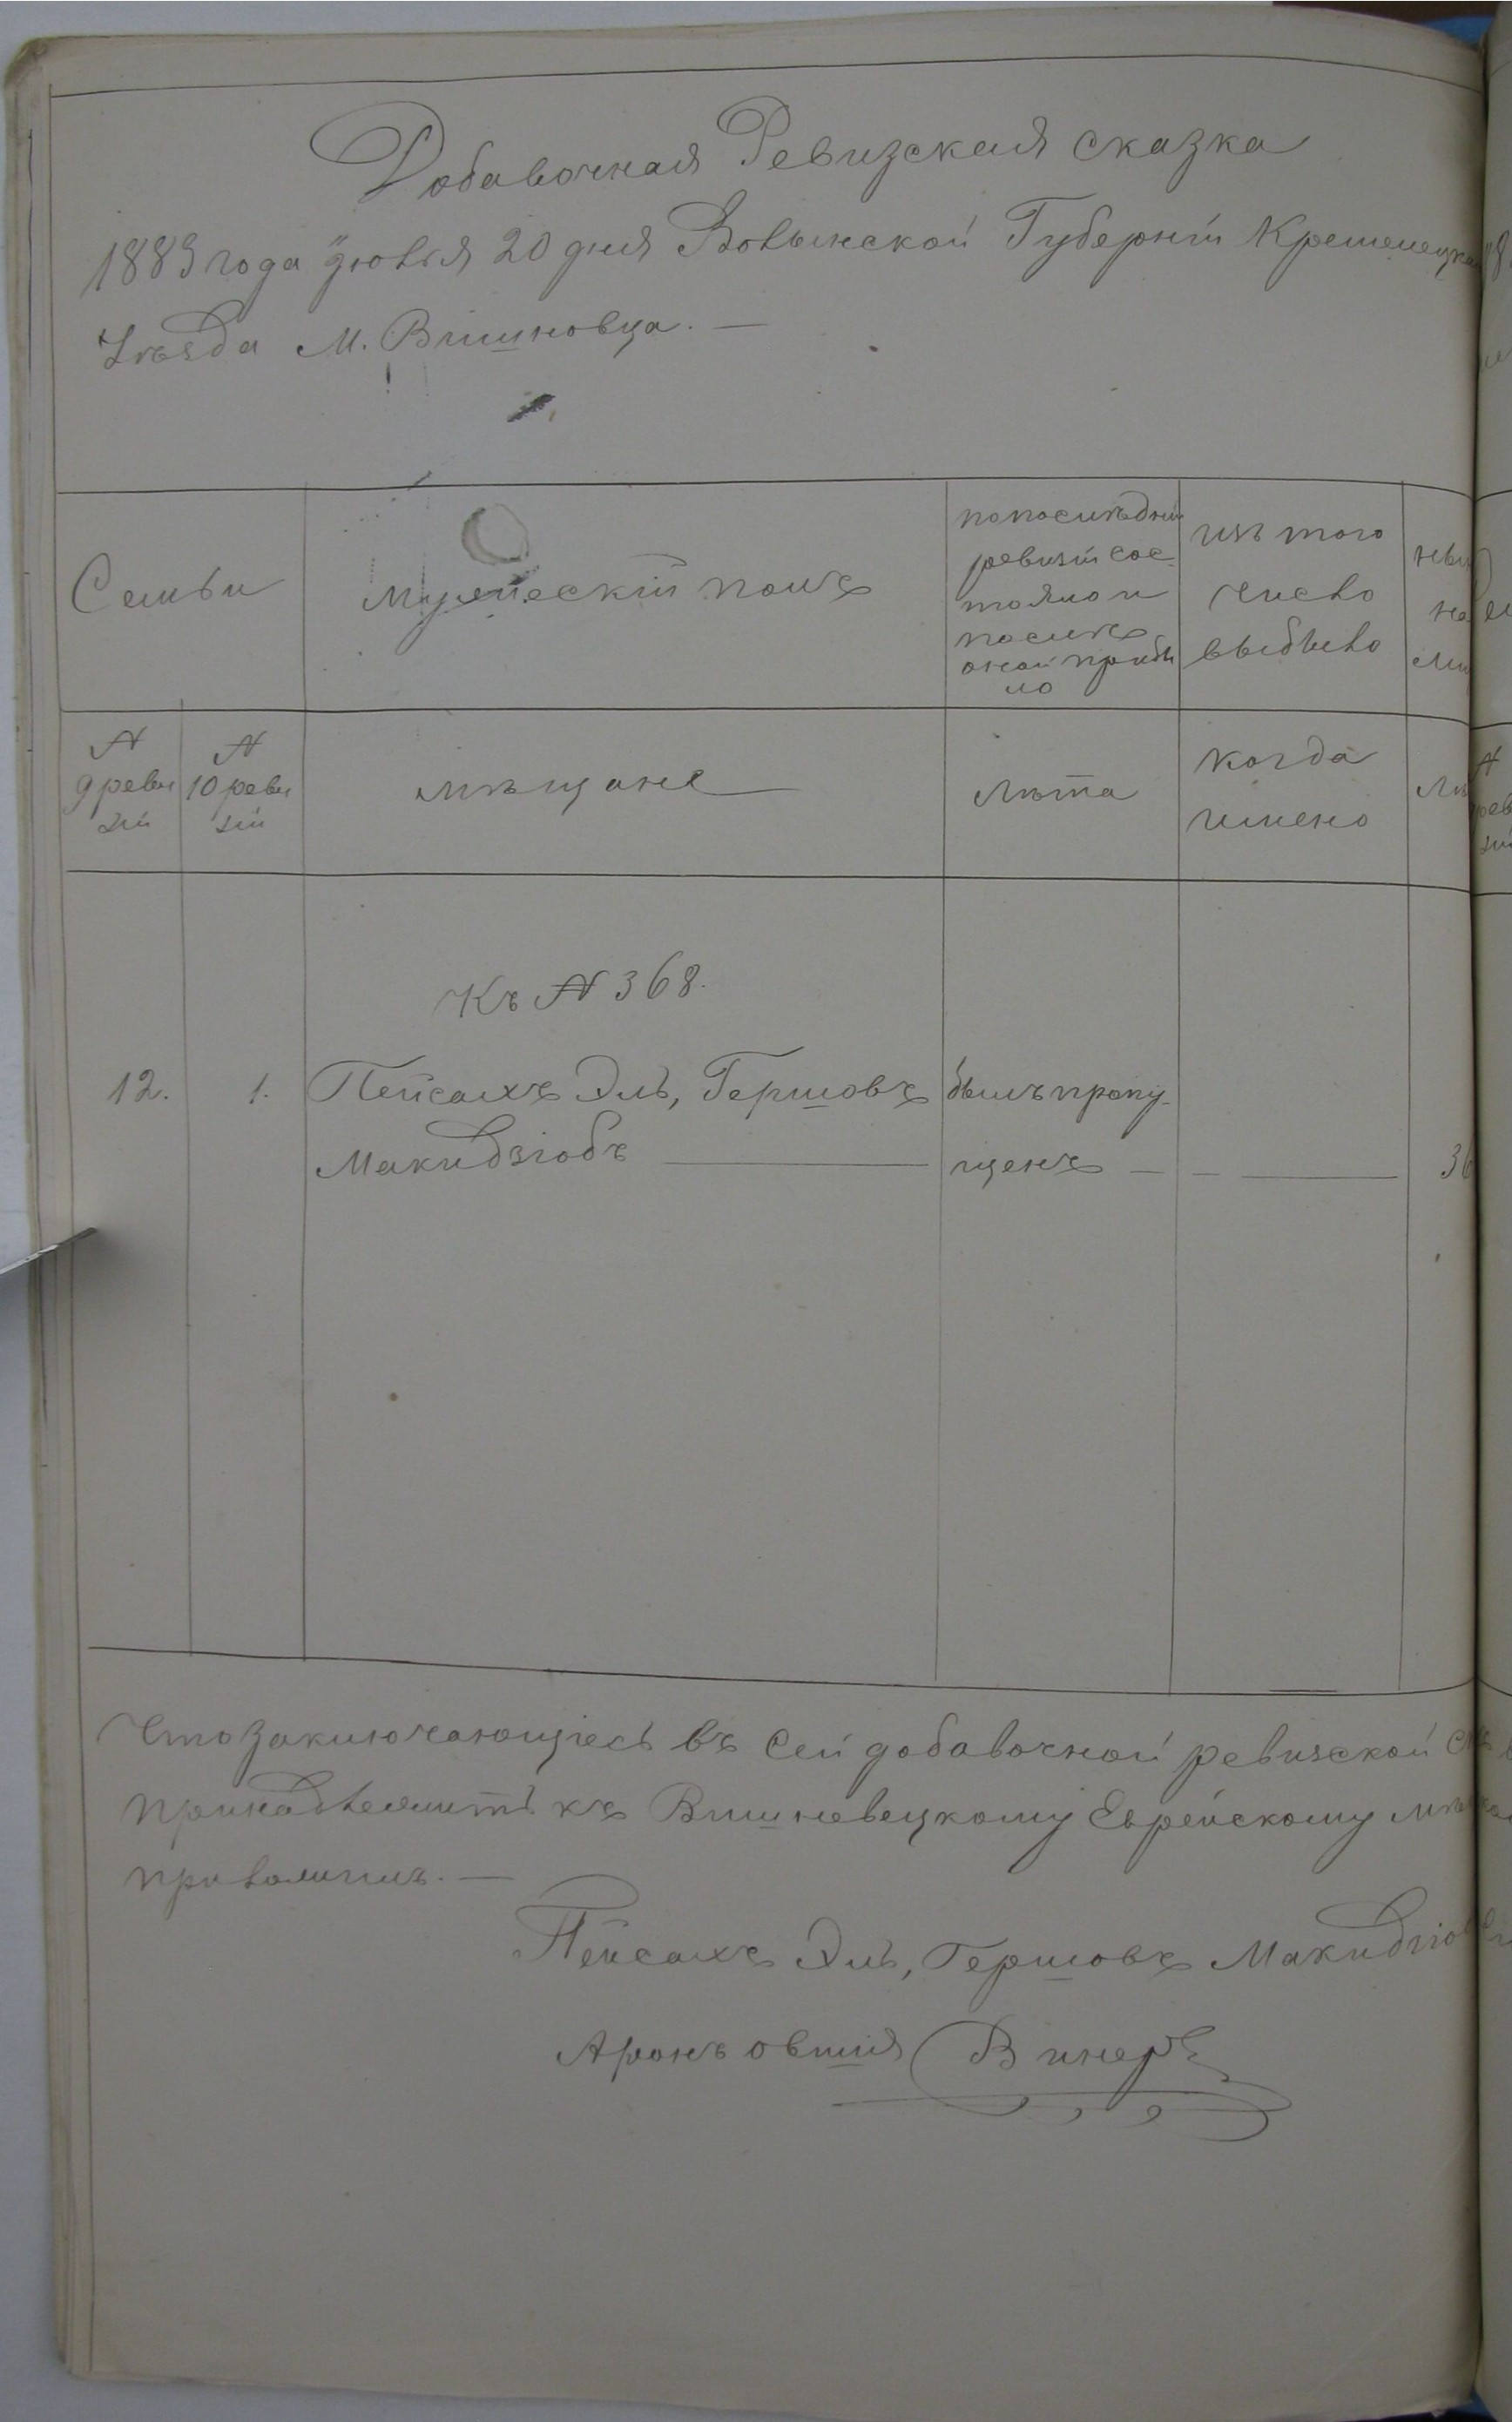 Добавочная Ревизская сказка
1883 года Июля 20 дня Волынской Губерніи Кременецка
Уѣзда М. Вишновца. —
Семьи
мужескій полъ
по послѣдній
ревизіи сос-
тояло и
послѣ
оной прибы
ло
изъ того
число
выбыло
N
9 реви
зіи
N
10 реви
зіи
мѣщане
лѣта
когда
имено
Къ N 368.
12. 1. Пейсахъ Эль, Гершовъ былъ пропу-
Макидзіобъ — щенъ — — — 36
Что заключающіесь въ сей добавочной ревизской
принадлежитъ къ Вишневецкому Еврейскому
приказали. —
Пейсахъ Эль, Гершовъ Макидзіо
Аронъ Овшія Винеръ